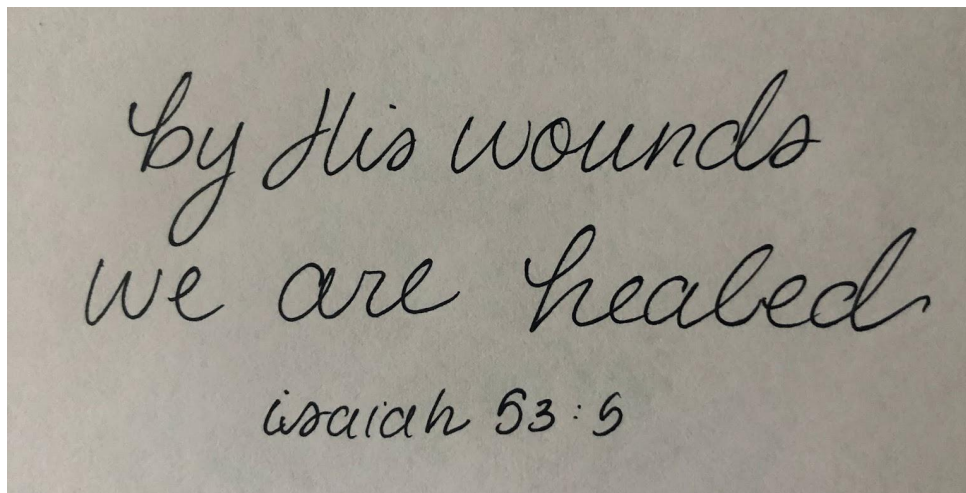 by His wounds
we are healed
isaiah 53:5